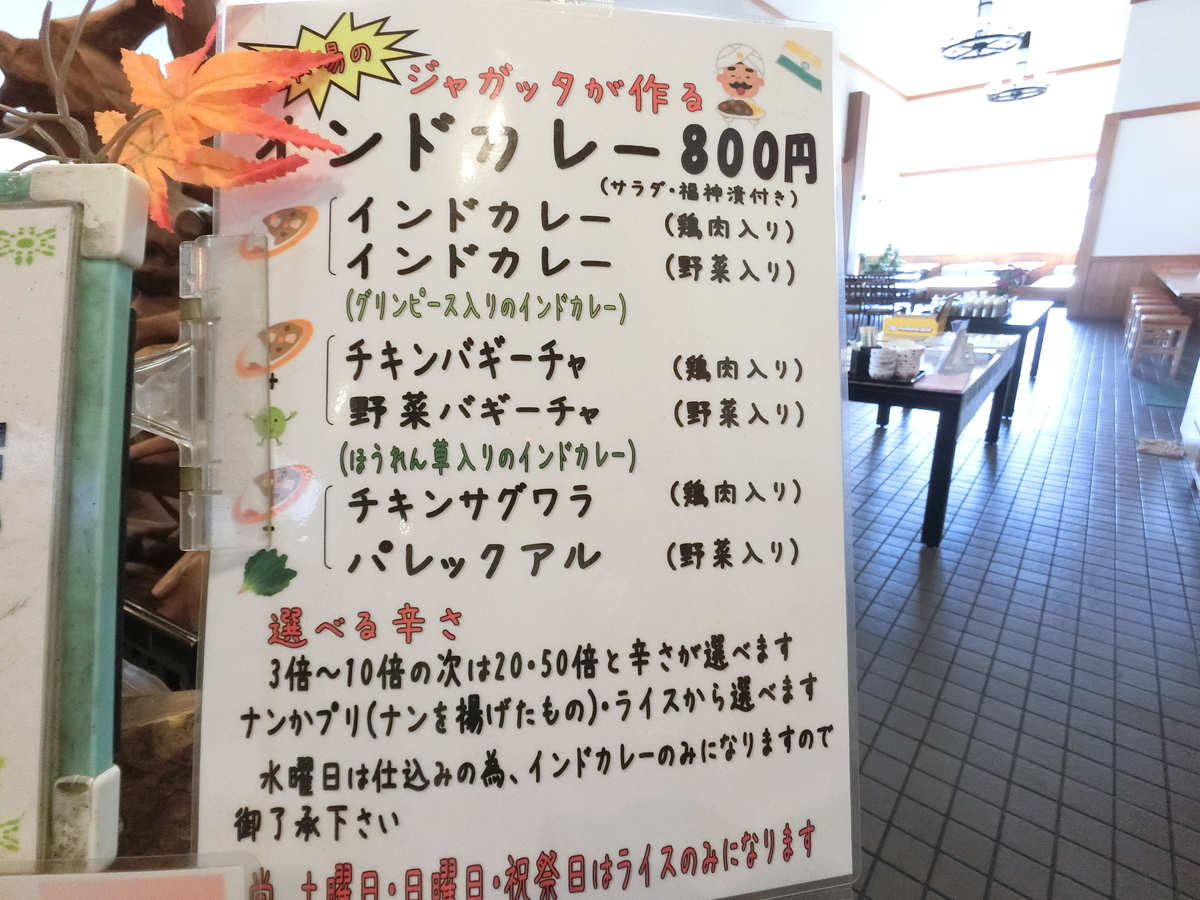 の
ジャガッタが作る
インドカレー 800円
(サラダ・福神漬付き)
インドカレー (鶏肉入り)
インドカレー (野菜入り)
(グリンピース入りのインドカレー)
チキンバギーチャ (鶏肉入り)
野菜バギーチャ (野菜入り)
(ほうれん草入りのインドカレー)
チキンサグワラ (鶏肉入り)
パレックアル (野菜入り)
選べる辛さ
3倍～10倍の次は20・50倍と辛さが選べます
ナンかプリ(ナンを揚げたもの)・ライスから選べます
水曜日は仕込みの為、インドカレーのみになりますので
御了承下さい
尚 土曜日・日曜日・祝祭日はライスのみになります